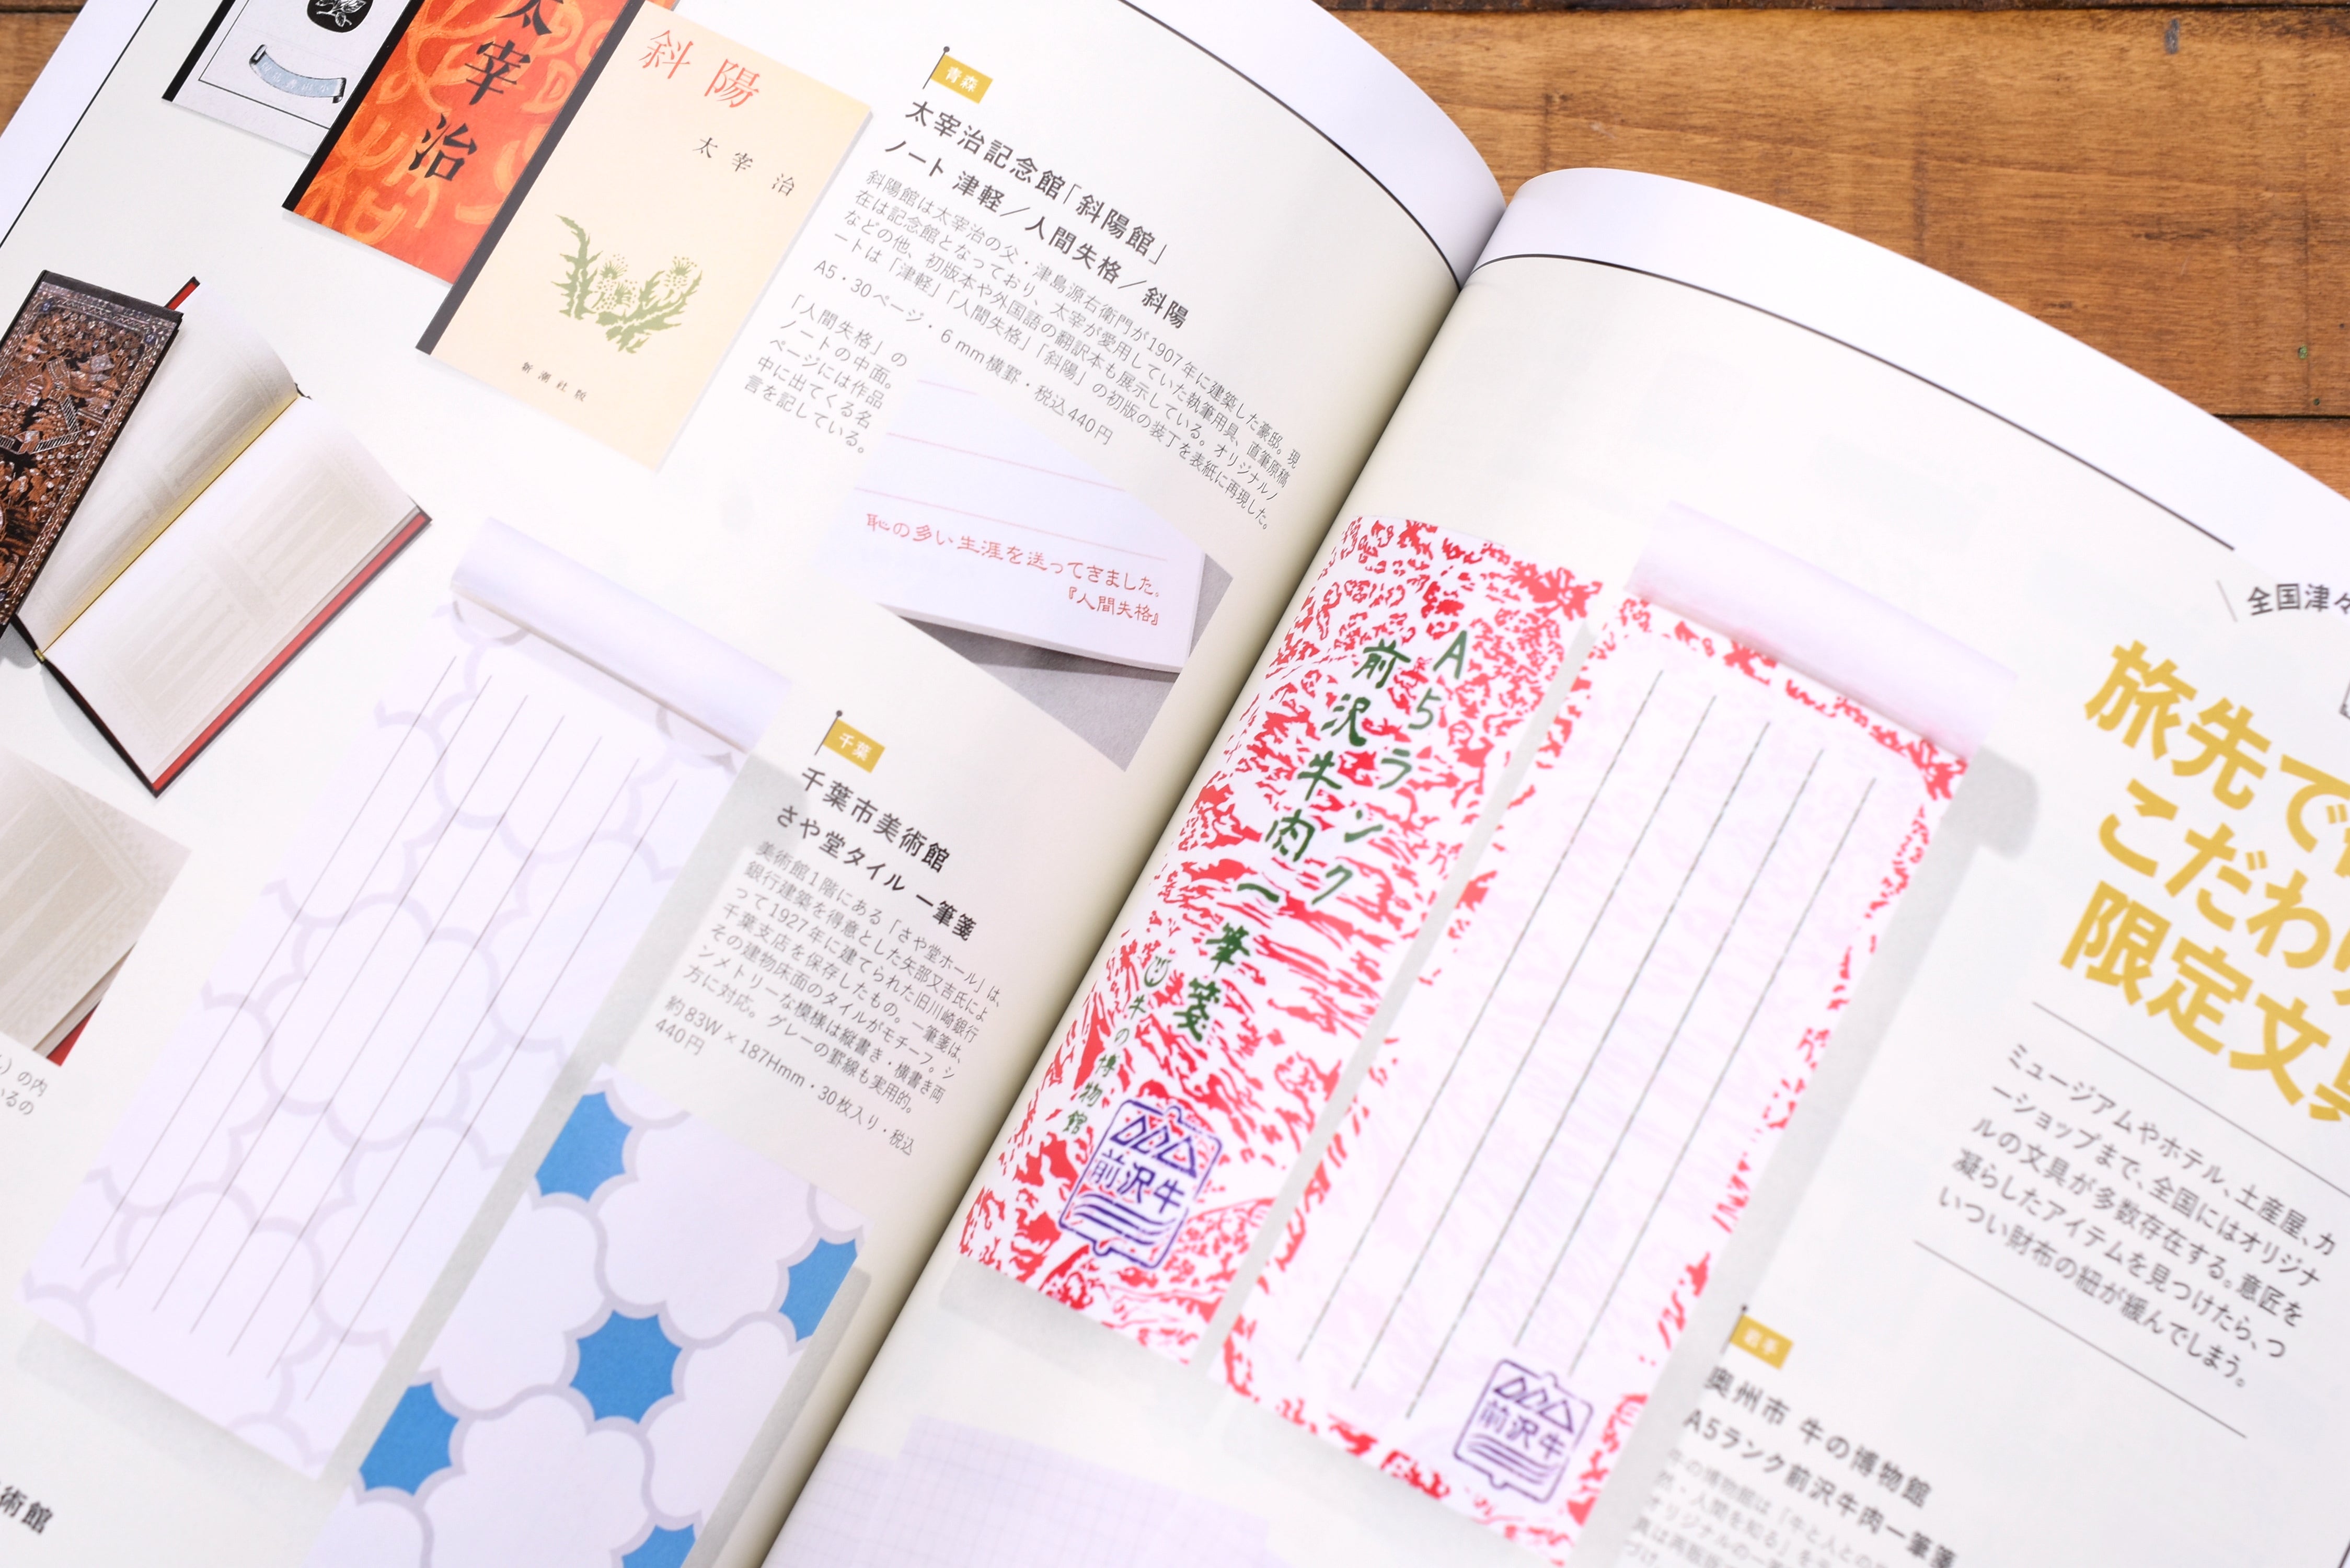 太宰治
斜陽
太宰治
新潮社版
青森
太宰治記念館「斜陽館」
ノート 津軽／人間失格／斜陽
斜陽館は太宰治の父・津島源右衛門が1907年に建築した豪邸。現
在は記念館となっており、太宰が愛用していた執筆用具、直筆原稿
などの他、初版本や外国語の翻訳本も展示している。オリジナルノ
ートは「津軽」「人間失格」「斜陽」の初版の装丁を表紙に再現した。
A5・30ページ・6mm横罫・税込440円
「人間失格」の
ノートの中面。
ページには作品
中に出てくる名
言を記している。
恥の多い生涯を送ってきました。
『人間失格』
千葉
千葉市美術館
さや堂タイル 一筆箋
美術館1階にある「さや堂ホール」は、
銀行建築を得意とした矢部又吉氏によ
って1927年に建てられた旧川崎銀行
千葉支店を保存したもの。一筆箋は、
その建物床面のタイルがモチーフ。シ
ンメトリーな模様は縦書き・横書き両
方に対応。グレーの罫線も実用的。
約83W×187Hmm・30枚入り・税込
440円
の内
るの
術館
A5ランク
前沢牛肉一筆箋
牛の博物館
前沢牛
前沢牛
全国津々
旅先で
こだわ
限定文具
ミュージアムやホテル、土産屋、カ
ーショップまで、全国にはオリジナ
ルの文具が多数存在する。意匠を
凝らしたアイテムを見つけたら、つ
いつい財布の紐が緩んでしまう。
岩手
奥州市 牛の博物館
A5ランク前沢牛肉一筆箋
牛の博物館は「牛と人との
然・人間を知る」を
オリジナルの一